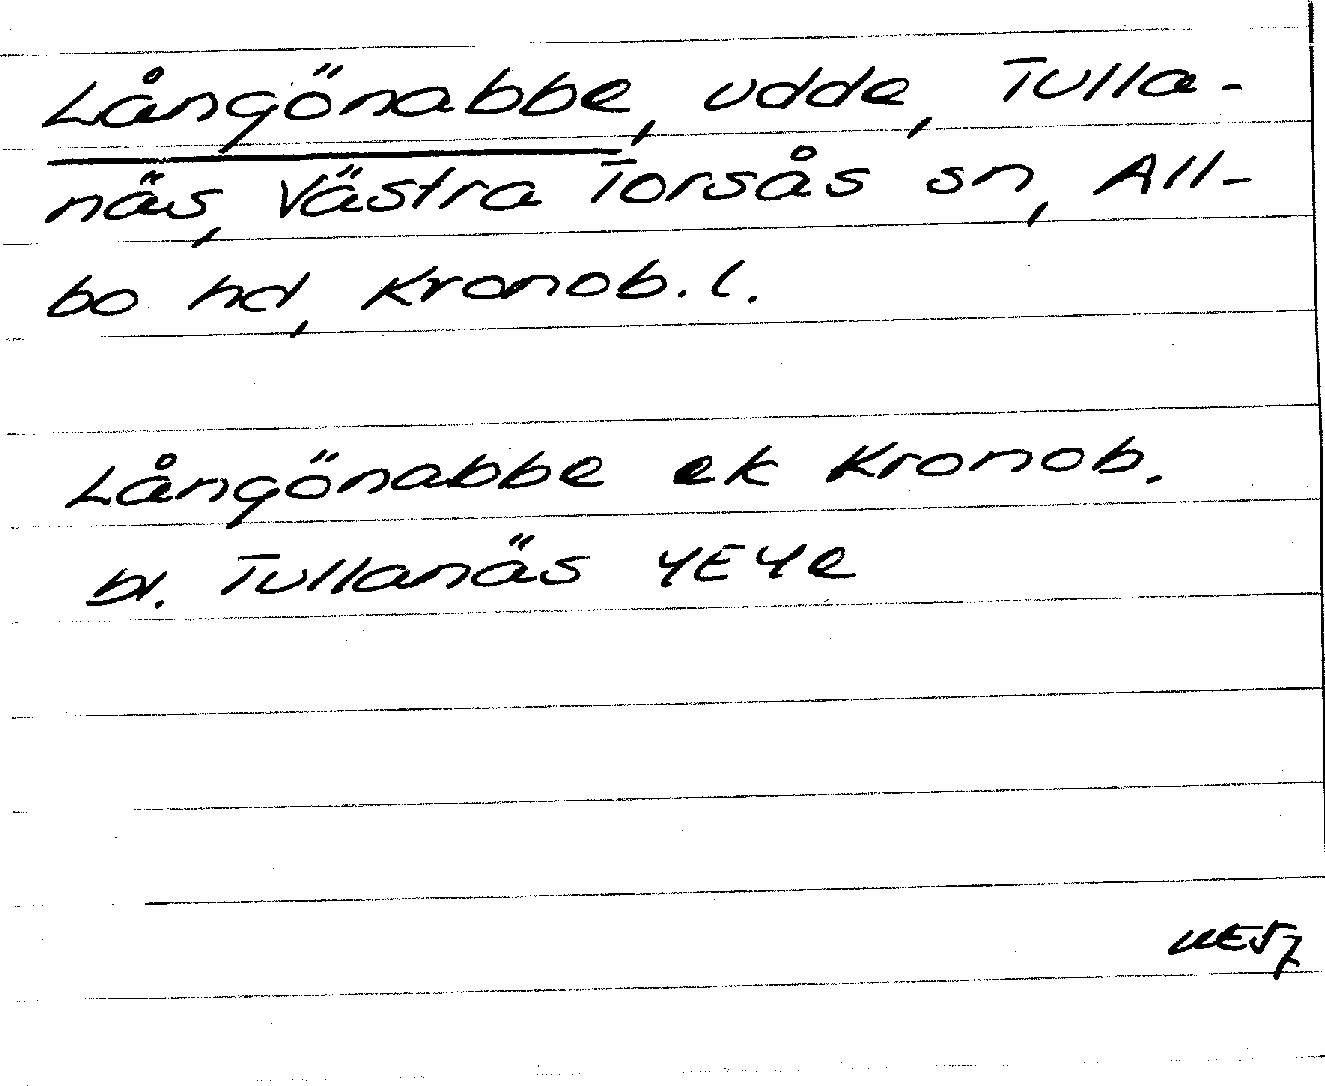 Långönabbe, udde, Tulla-
näs, Västra Torsås sn, All-
bo hd, Kronob. l.
Långönabbe ek Kronob.
bl. Tullanäs 4E4e